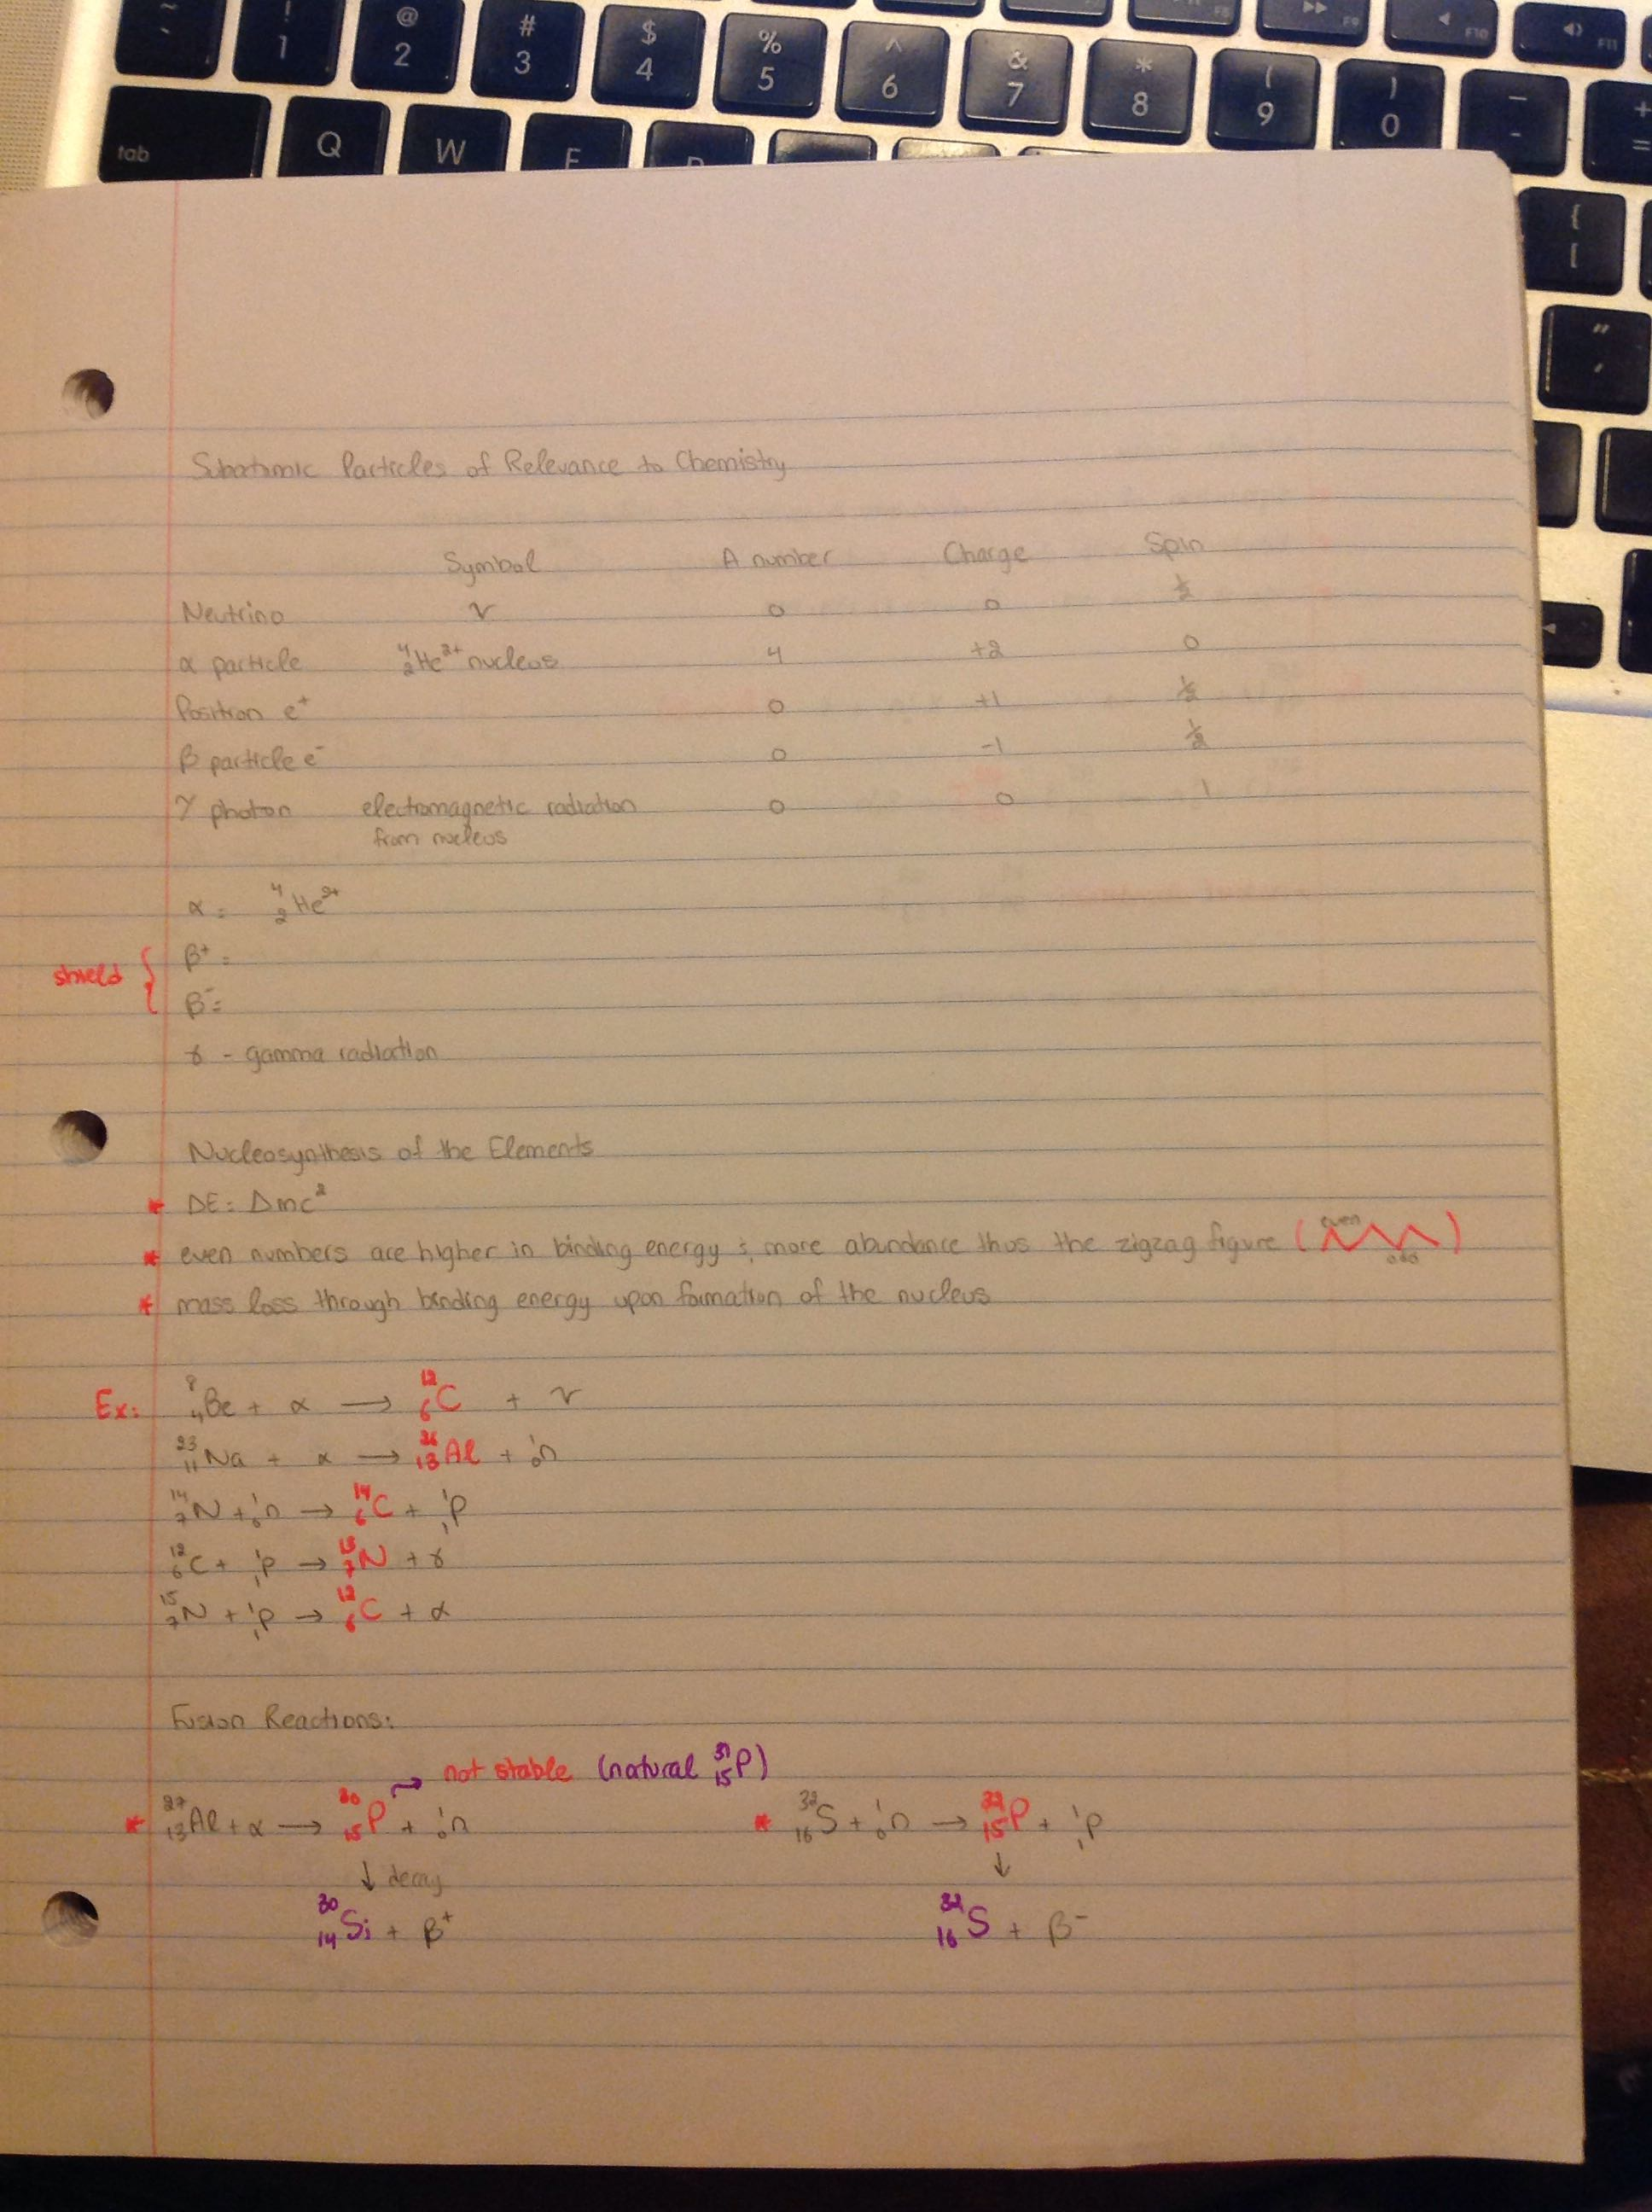 ~ ` ! 1 @ 2 # 3 $ 4 % 5 ^ 6 & 7 * 8 ( 9 ) 0 _ - + =
F9 F10 F11
tab Q W
{ [
" '
Subatomic Particles of Relevance to Chemistry
Symbol A number Charge Spin
Neutrino ν 0 0 ½
α particle ⁴₂He²⁺ nucleus 4 +2 0
Positron e⁺ 0 +1 ½
β particle e⁻ 0 -1 ½
γ photon electromagnetic radiation 0 0 1
from nucleus
α = ⁴₂He²⁺
shield { β⁺ =
β⁻ =
γ - gamma radiation
Nucleosynthesis of the Elements
* ΔE = Δmc²
* even numbers are higher in binding energy & more abundance thus the zigzag figure (even odd)
* mass loss through binding energy upon formation of the nucleus
Ex: ⁸₄Be + α → ¹²₆C + γ
²³₁₁Na + α → ²⁶₁₃Al + ¹₀n
¹⁴₇N + ¹₀n → ¹⁴₆C + ¹₁p
¹²₆C + ¹₁p → ¹³₇N + γ
¹⁵₇N + ¹₁p → ¹²₆C + α
Fusion Reactions:
→ not stable (natural ³¹₁₅P)
* ²⁷₁₃Al + α → ³⁰₁₅P + ¹₀n * ³²₁₆S + ¹₀n → ³²₁₅P + ¹₁p
↓ decay ↓
³⁰₁₄Si + β⁺ ³²₁₆S + β⁻